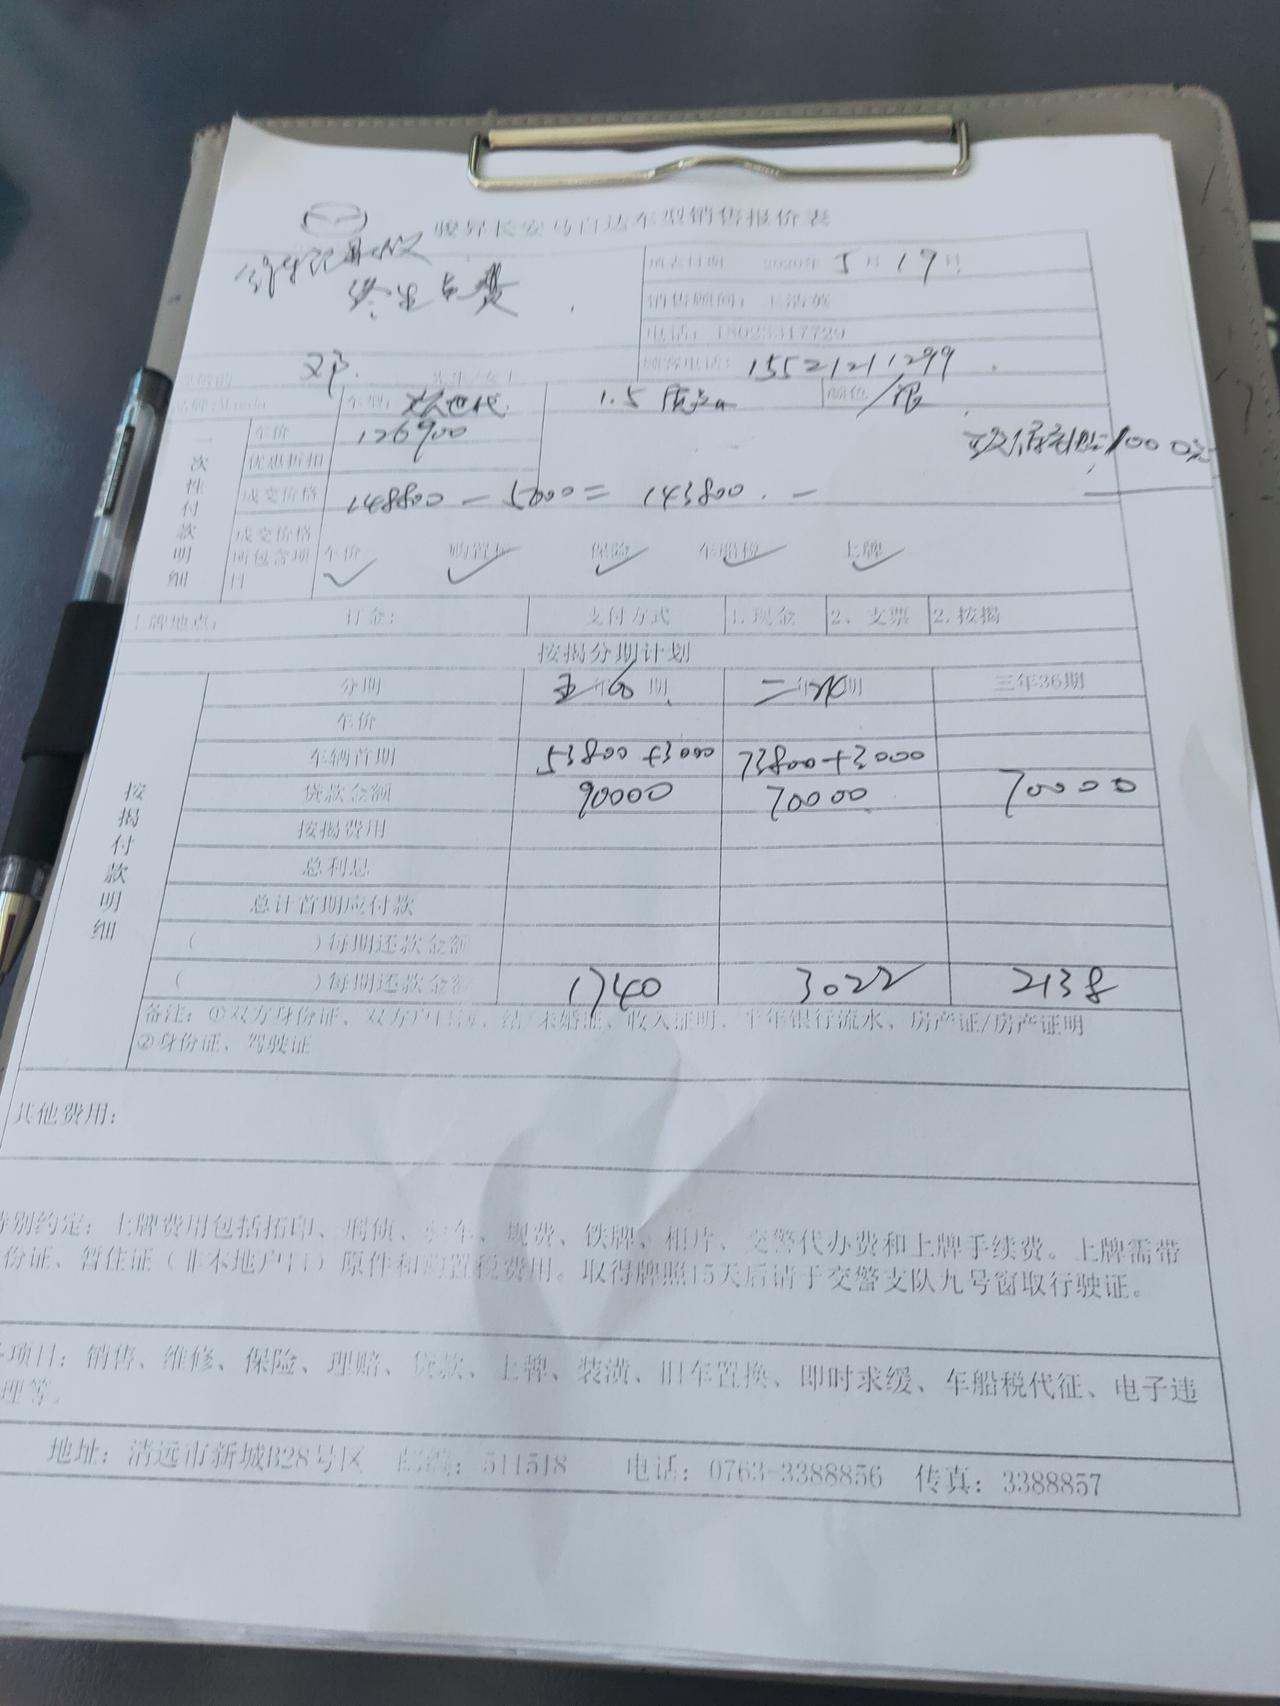 骏昇长安马自达车型销售报价表
行车记录仪
终生免费
填表日期 2020年5月19日
销售顾问:王浩英
电话:18023317729
顾客电话:15521211299
邓 先生/女士
车型:次世代 1.5 质美 颜色/银
一次性付款明细
车价 126900
政府补贴1000元
优惠折扣
成交价格 148800-5000=143800.-
成交价格所包含项目
车价✓ 购置税✓ 保险✓ 车船税✓ 上牌✓
上牌地点: 订金: 支付方式 1.现金 2、支票 2.按揭
按揭分期计划
按揭付款明细
分期 五年60期 二年24期 三年36期
车价
车辆首期 53800+3000 73800+3000
贷款金额 90000 70000 70000
按揭费用
总利息
总计首期应付款
( )每期还款金额
( )每期还款金额 1740 3022 2138
备注:①双方身份证、双方户口簿、结/未婚证、收入证明、半年银行流水、房产证/房产证明
②身份证、驾驶证
其他费用:
特别约定:上牌费用包括拓印、刑侦、验车、规费、铁牌、相片、交警代办费和上牌手续费。上牌需带
份证、暂住证(非本地户口)原件和购置税费用。取得牌照15天后请于交警支队九号窗取行驶证。
项目:销售、维修、保险、理赔、贷款、上牌、装潢、旧车置换、即时求缓、车船税代征、电子违
理等。
地址:清远市新城B28号区 邮编:511518 电话:0763-3388856 传真:3388857